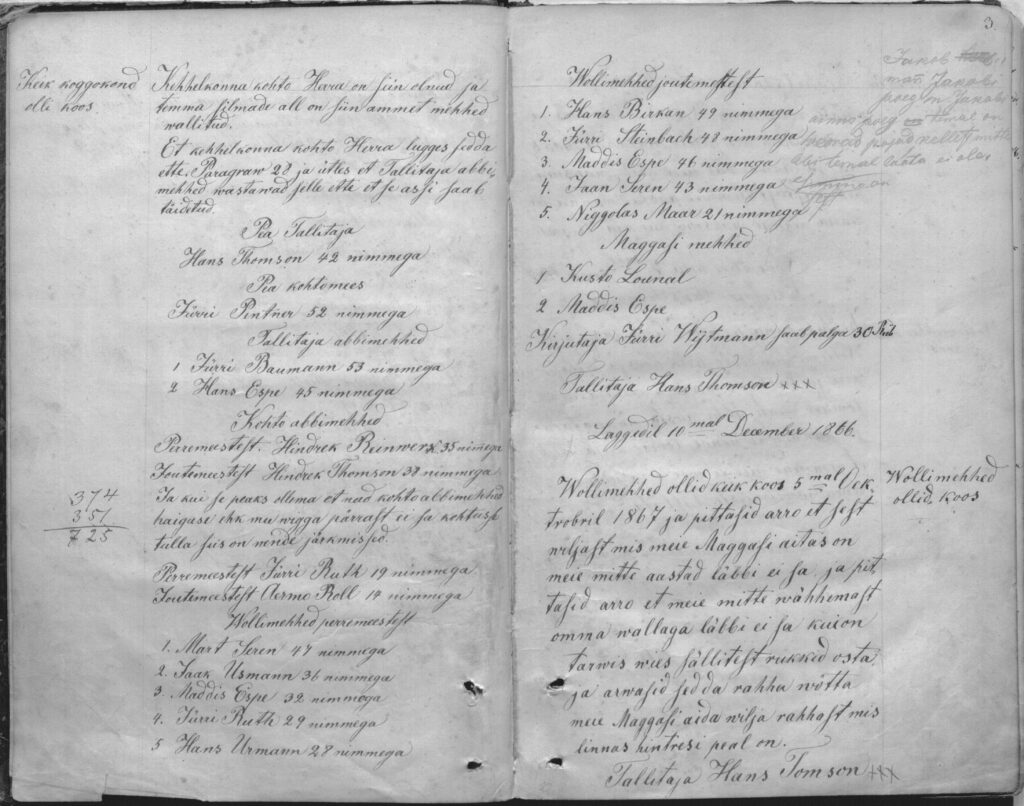 Keik koggokond
olli koos
Kihhelkonna kohto Herra on siin olnud ja
temma silmade all on siin ammet mehhed
wallitud.
Et kehhelkonna kohto Herra lugges sedda
ette. Paragraw 28 ja ütles et Tallitaja abbi,
mehhed wastawad selle ette et se assi saab
täidetud.
Pea Tallitaja
Hans Thomson 42 nimmega
Pea kohtomees
Jürri Pintner 52 nimmega
Tallitaja abbimehhed
1 Jürri Baumann 53 nimmega
2 Hans Espe 45 nimmega
Kohto abbimehhed
Perremeestest. Hindrek Reinwerk 35 nimega
Joutemeestest Hindrek Thomson 38 nimmega
Ja kui se peaks ollema et nad kohto abbimehhed
haiguse ehk mu wigga pärrast ei sa kohtusse
tulla siis on nende järkmissed.
374
351
725
Perremeestest Jürri Ruth 19 nimmega
Joutemeestest Aermo Roll 14 nimmega
Wollimehhed perremeestest
1. Mart Seren 47 nimmega
2. Jaak Usmann 36 nimmega
3. Maddis Espe 32 nimmega
4. Jürri Ruth 29 nimmega
5 Hans Urmann 28 nimmega
3.
Wollimehhed joutemestest
1. Hans Birkan 49 nimmega
2. Jürri Steinbach 48 nimmega
3. Maddis Espe 46 nimmega
4. Jaan Seren 43 nimmega
5. Niggolas Maar 21 nimmega
Jakob
Jakobi
poeg on Jakobi
poeg temal on
pojad nellast mitte
temal ei olle
Maggasi mehhed
1 Kusto Louncel
2 Maddis Espe
Kirjutaja Jürri Wijtmann saab palga 30 Rub
Tallitaja Hans Thomson xxx
Laggedil 10 mal December 1866.
Wollimehhed
ollid koos
Wollimehhed ollid keik koos 5 mal Ock,
trobril 1867 ja pittasid arro et sest
wiljast mis meie Maggasi aitas on
meie mitte aastad läbbi ei sa ja pit,
tasid arro et meie mitte wähhemast
omma wallaga läbbi ei sa kui on
tarwis wies sällitest rukkid osta
ja arwasid sedda rahha wötta
meie Maggasi aida wilja rahhast mis
linnas hintresi peal on.
Tallitaja Hans Tomson xxx